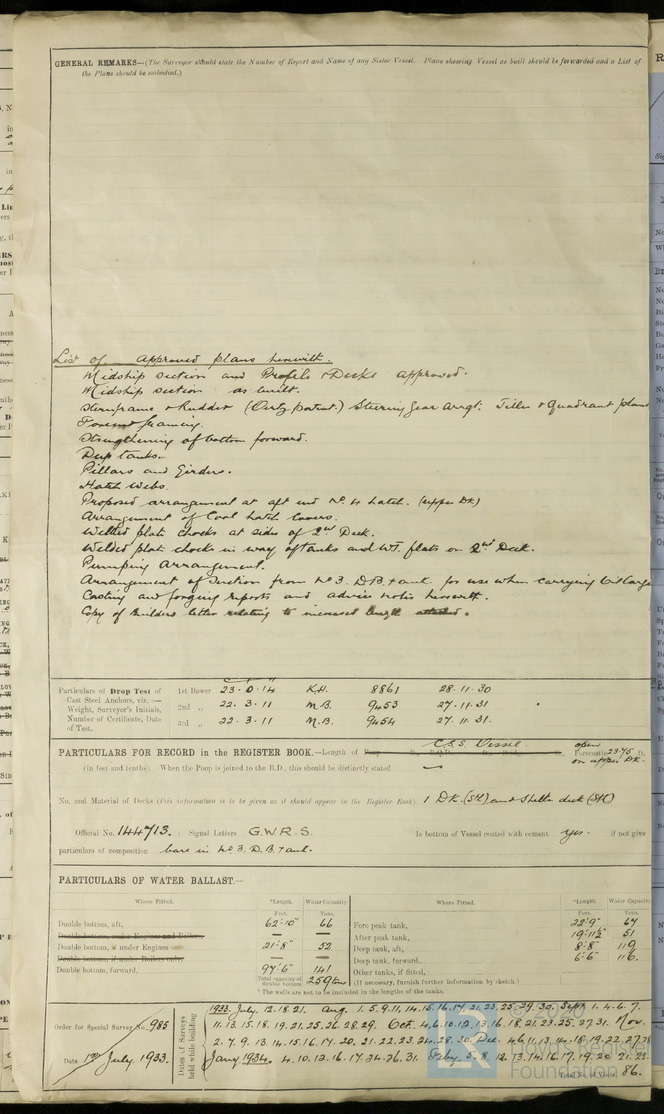 GENERAL REMARKS—(The Surveyor should state the Number of Report and Name of any Sister Vessel. Plans showing Vessel as built should be forwarded and a List of
the Plans should be embodied.)
List of approved plans herewith.
Midship section and Profile & Decks approved.
Midship section as built.
Sternframe & Rudder (Oertz patent.) Steering Gear Arrgt: Tiller & Quadrant plans
framing.
Strengthening of bottom forward.
Deep tanks.
Pillars and Girders.
Hatch Webs.
Proposed arrangement at aft end No. 4 hatch. (upper DK)
Arrangement of Coal hatch covers.
Welded plate chocks at sides of 2nd Deck.
Welded plate chocks in way of tanks and W.T. flats on 2nd Deck.
Pumping Arrangement.
Arrangement of Suction from No 3. D.B. tank. for use when carrying
Casting and forging reports and advice notes herewith.
Copy of Builders letter relating to increased length
Particulars of Drop Test of Cast Steel Anchors, viz.:— Weight, Surveyor's Initials, Number of Certificate, Date of Test.
1st Bower 23.0.14 K.H. 8861 28.11.30
2nd „ 22.3.11 M.B. 9453 27.11.31
3rd „ 22.3.11 M.B. 9454 27.11.31.
PARTICULARS FOR RECORD in the REGISTER BOOK.—Length of Poop C.S.S. Vessel. open Forecastle 23.75 ft.
(in feet and tenths). When the Poop is joined to the B.D., this should be distinctly stated — on upper DK.
No. and Material of Decks (this information is to be given as it should appear in the Register Book) 1 DK. (Stl) and Shelter deck (Stl)
Official No. 144713. ; Signal Letters G.W.R.S. Is bottom of Vessel coated with cement yes. if not give
particulars of composition bare in No 3. D.B. tank.
PARTICULARS OF WATER BALLAST.—
Where Fitted. *Length. Water Capacity Where Fitted. *Length. Water Capacity
Feet. Tons. Feet. Tons.
Double bottom, aft, 62'-10" 66 Fore peak tank, 22'-9" 67
— — After peak tank, 19'-11½" 51
Double bottom, under Engines 21'-8" 52 Deep tank, aft, 8'-8" 119
Double bottom, if under Boilers only — — Deep tank, forward, 6'-6" 116.
Double bottom, forward, 97'-6" 141 Other tanks, if fitted,
Total capacity of double bottom 259 tons (If necessary, furnish further information by sketch.)
* The wells are not to be included in the lengths of the tanks.
Order for Special Survey No. 985
Date 1st July 1933.
Dates of Surveys held while building
1933. July. 12.18.21. Aug. 1.5.9.11.14.15.16.17.21.23.25.29.30. Sept. 1.4.6.7.
11.13.15.18.19.21.25.26.28.29. Oct. 4.6.10.12.13.16.18.21.23.25.27.31. Nov.
2.7.9.13.14.15.16.17.20.21.22.23.24.28.30. Dec. 4.6.11.13.14.18.19.22.27.28
Jany 1934. 4.10.12.16.17.24.26.31. Feby. 5.8.12.13.14.16.17.19.20.21.23.
Total No. of Visits 86.
© 2020
LR
Lloyd's Register
Foundation